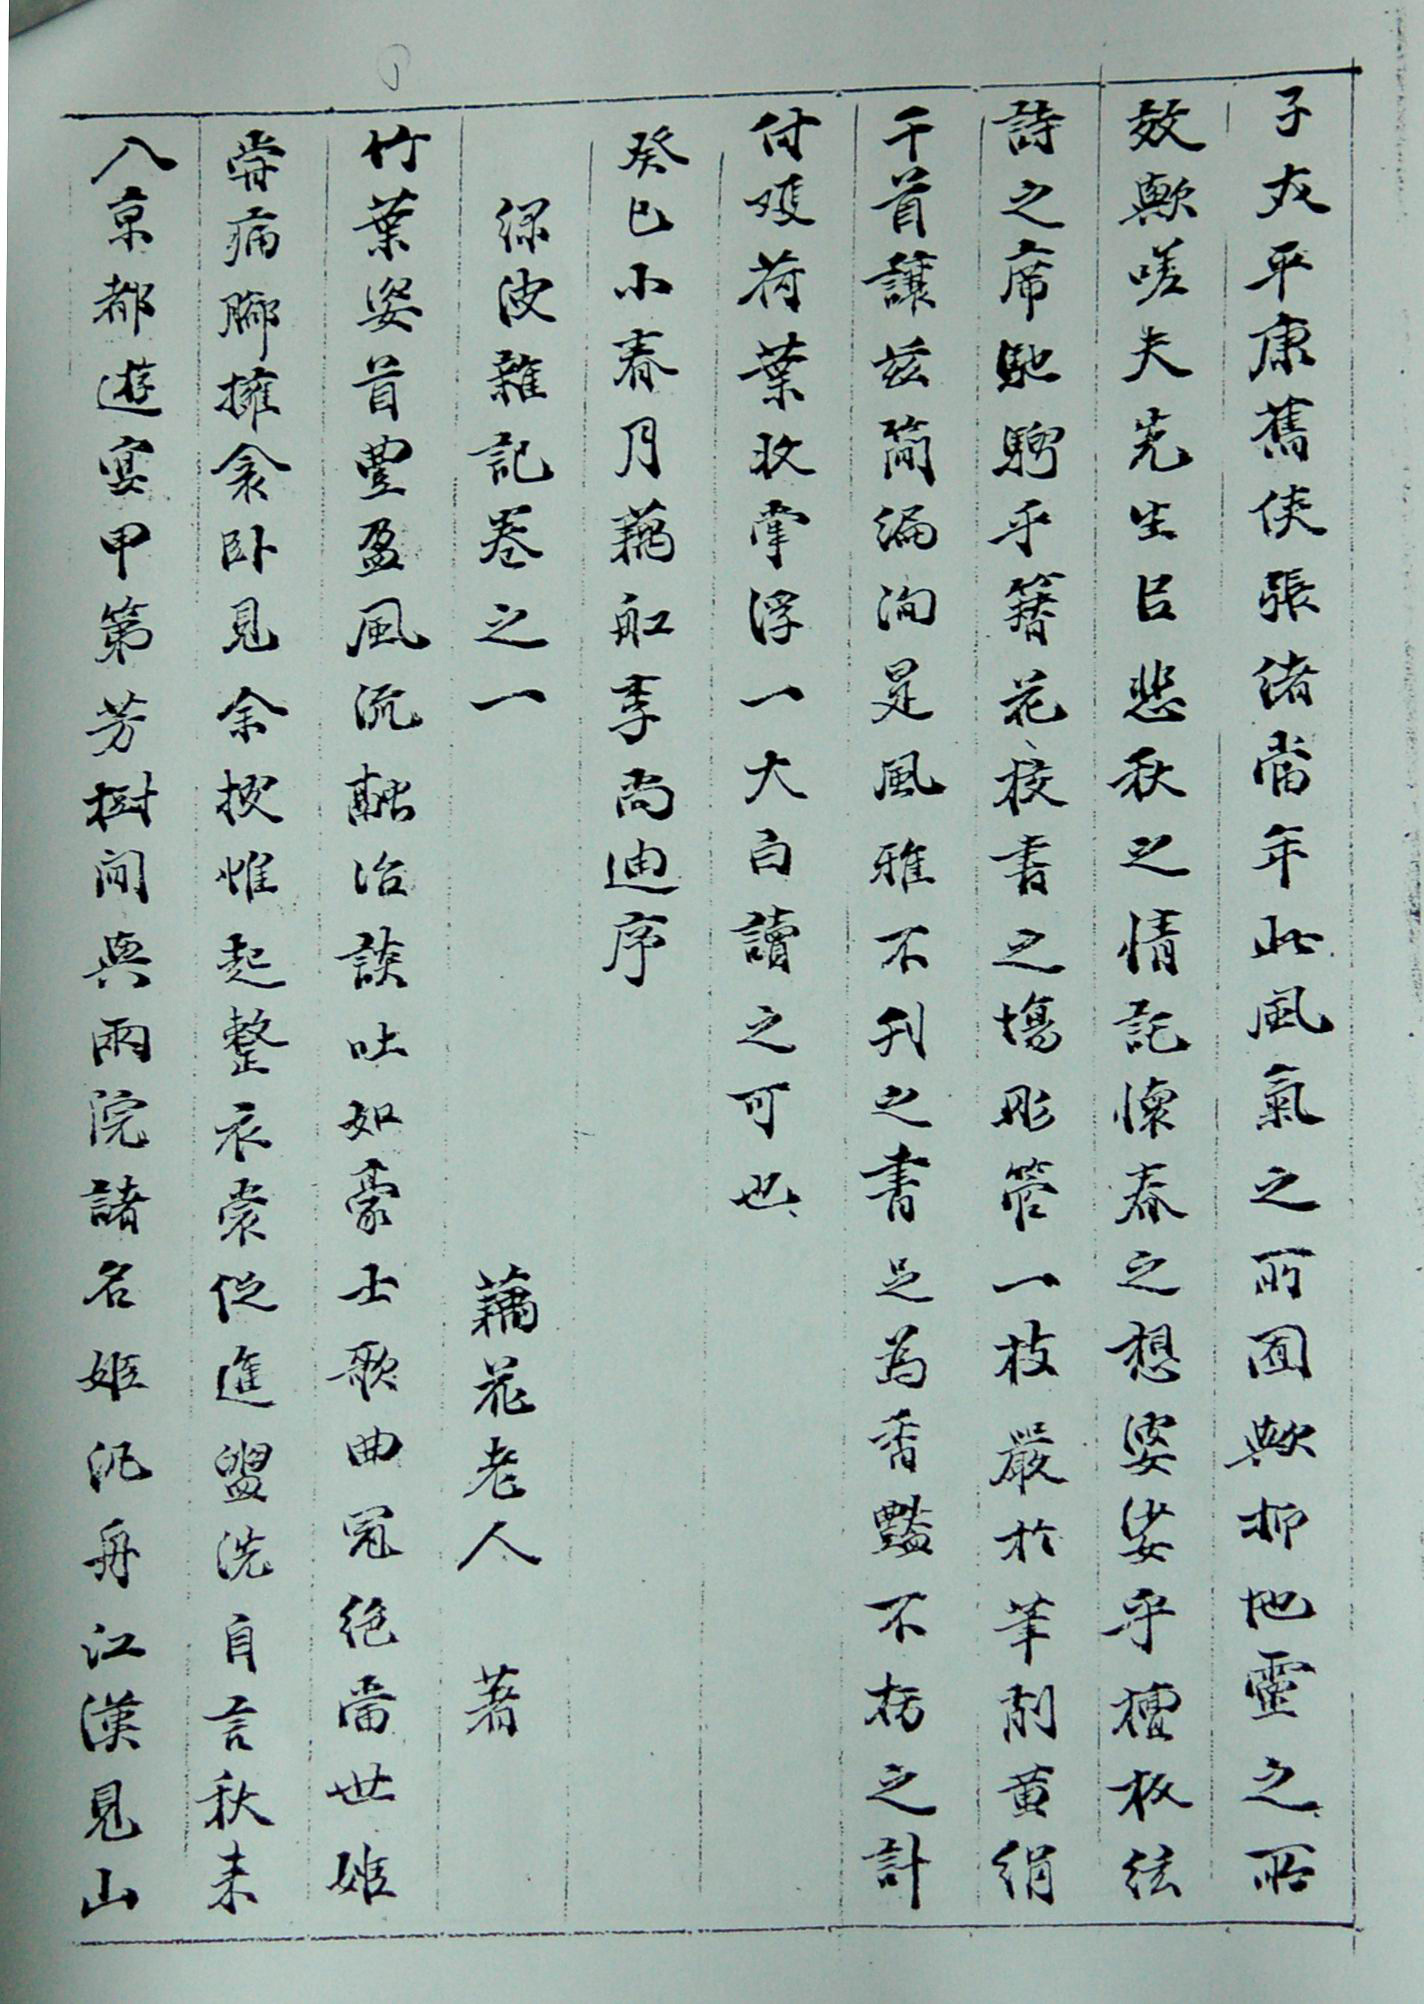 子友平康舊俠張緒當年此風氣之所囿歟抑地靈之所
效歟嗟夫先生以悲秋之情託懷春之想婆娑乎檀板絃
詩之席馳騁乎簪花校書之場彤管一枝嚴於筆削黃絹
千首讓玆簡編洵是風雅不刊之書足為香豔不朽之計
付與荷葉收掌浮一大白讀之可也
癸巳小春月藕舡李尚迪序
綠波雜記卷之一
藕花老人 著
竹葉姿首豊盈風流融冶談吐如豪士歌曲冠絕當世姬
嘗病脚擁衾卧見余搴帷起整衣裳促進盥洗自言秋來
八京都遊宴甲第芳樹間與兩院諸名姬汎舟江漢見山